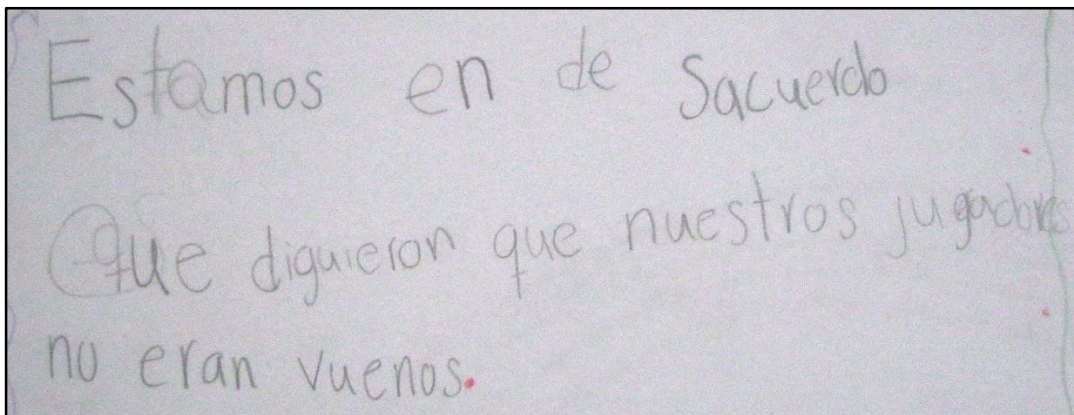 Estamos en de Sacuerdo
Que diguieron que nuestros jugadores
no eran vuenos.